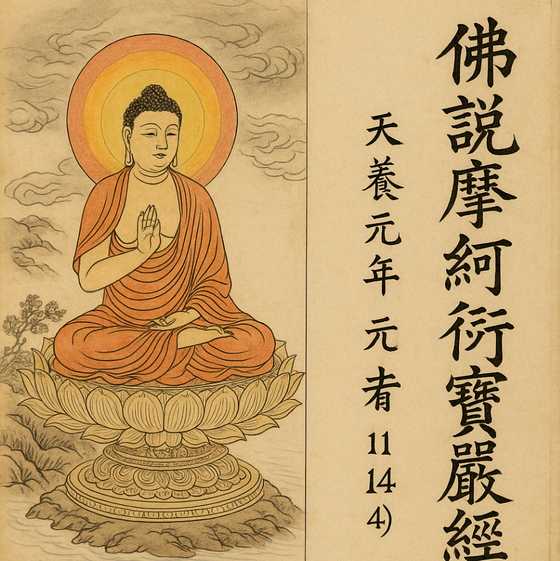 佛説摩紻衍寶嚴經
天養元年 元者 11 14 4)